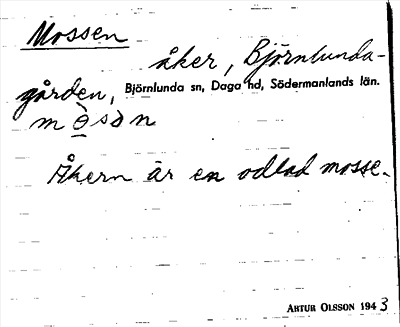 Mossen
åker, Björnlunda-
gården, Björnlunda sn, Daga hd, Södermanlands län.
mòsòn
Åkern är en odlad mosse.
ARTUR OLSSON 1943